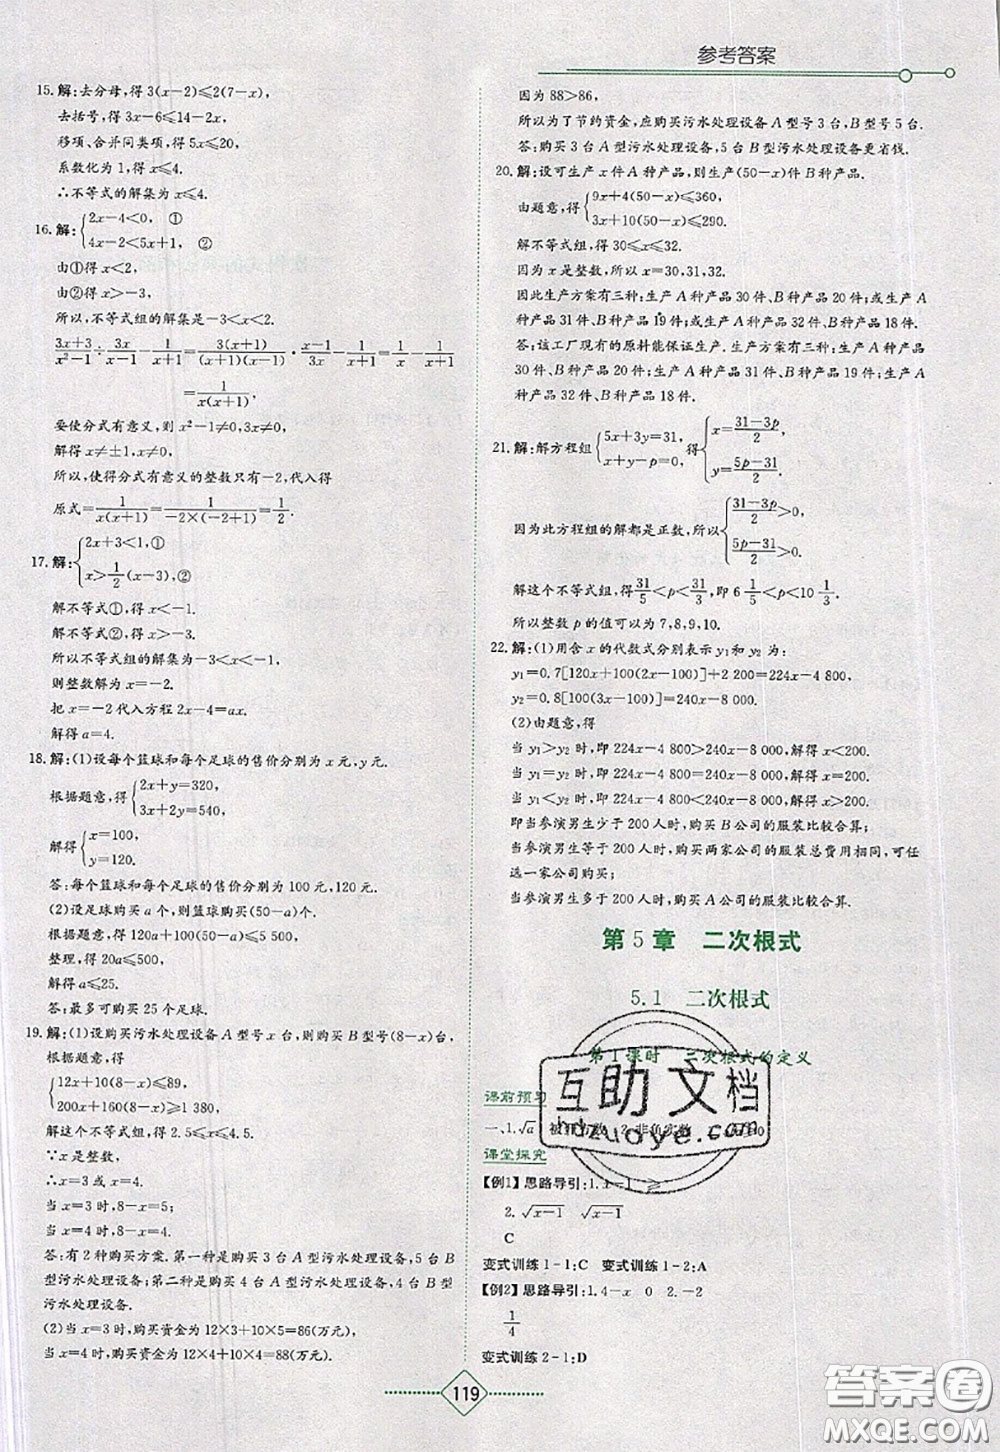 参考答案
15.解:去分母,得 3(x-2)≤2(7-x),
去括号,得 3x-6≤14-2x,
移项、合并同类项,得 5x≤20,
系数化为 1,得 x≤4.
∴不等式的解集为 x≤4.
16.解:{2x-4<0, ①
4x-2<5x+1, ②
由①得 x<2,
由②得 x>-3,
所以,不等式组的解集是-3<x<2.
(3x+3)/(x²-1)÷3x/(x-1)-1/(x+1)=3(x+1)/((x+1)(x-1))·(x-1)/3x-1/(x+1)=1/x-1/(x+1)
=1/(x(x+1)),
要使分式有意义,则 x²-1≠0,3x≠0,
解得 x≠±1,x≠0,
所以,使得分式有意义的整数只有-2,代入得
原式=1/(x(x+1))=1/(-2×(-2+1))=1/2.
17.解:{2x+3<1,①
x>1/2(x-3),②
解不等式①,得 x<-1.
解不等式②,得 x>-3.
所以不等式的解集为-3<x<-1.
则整数解为 x=-2.
把 x=-2代入方程 2x-4=ax.
解得 a=4.
18.解:(1)设每个篮球和每个足球的售价分别为 x 元,y元.
根据题意,得{2x+y=320,
3x+2y=540,
解得{x=100,
y=120.
答:每个篮球和每个足球的售价分别为 100 元,120 元.
(2)设足球购买 a 个,则篮球购买(50-a)个.
根据题意,得 120a+100(50-a)≤5 500,
整理,得 20a≤500,
解得 a≤25.
答:最多可购买 25 个足球.
19.解:(1)设购买污水处理设备 A 型号 x 台,则购买 B 型号(8-x)台,
根据题意,得
{12x+10(8-x)≤89,
200x+160(8-x)≥1 380,
解这个不等式组,得 2.5≤x≤4.5.
∵x 是整数,
∴x=3 或 x=4.
当 x=3 时,8-x=5;
当 x=4 时,8-x=4.
答:有 2 种购买方案.第一种是购买 3 台 A 型污水处理设备,5 台 B
型污水处理设备;第二种是购买 4 台 A 型污水处理设备,4 台 B 型
污水处理设备.
(2)当 x=3 时,购买资金为 12×3+10×5=86(万元),
当 x=4 时,购买资金为 12×4+10×4=88(万元).
因为 88>86,
所以为了节约资金,应购买污水处理设备 A 型号 3 台,B 型号 5 台.
答:购买 3 台 A 型污水处理设备,5 台 B 型污水处理设备更省钱.
20.解:设可生产 x 件 A 种产品,则生产(50-x)件 B 种产品.
由题意,得{9x+4(50-x)≤360,
3x+10(50-x)≤290.
解不等式组,得 30≤x≤32.
因为 x 是整数,所以 x=30,31,32.
因此生产方案有三种:生产 A 种产品 30 件、B 种产品 20 件;或生产 A
种产品 31 件、B 种产品 19 件;或生产 A 种产品 32 件、B 种产品 18 件.
答:该工厂现有的原料能保证生产.生产方案有三种:生产 A 种产品
30 件、B 种产品 20 件;生产 A 种产品 31 件、B 种产品 19 件;生产 A
种产品 32 件、B 种产品 18 件.
21.解:解方程组{5x+3y=31, x+y-p=0, 得{x=(31-3p)/2,
y=(5p-31)/2.
因为此方程组的解都是正数,所以{(31-3p)/2>0,
(5p-31)/2>0.
解这个不等式组,得 31/5<p<31/3,即 6 1/5<p<10 1/3.
所以整数 p 的值可以为 7,8,9,10.
22.解:(1)用含 x 的代数式分别表示 y₁和 y₂为:
y₁=0.7[120x+100(2x-100)]+2 200=224x-4 800,
y₂=0.8[100(3x-100)]=240x-8 000,
(2)由题意,得
当 y₁>y₂ 时,即 224x-4 800>240x-8 000,解得 x<200.
当 y₁=y₂ 时,即 224x-4 800=240x-8 000,解得 x=200.
当 y₁<y₂ 时,即 224x-4 800<240x-8 000,解得 x>200.
即当参演男生少于 200 人时,购买 B 公司的服装比较合算;
当参演男生等于 200 人时,购买两家公司的服装总费用相同,可任
选一家公司购买;
当参演男生多于 200 人时,购买 A 公司的服装比较合算.
第 5 章 二次根式
5.1 二次根式
第 1 课时 二次根式的定义
课前预习
一、1.√a 被开方数 2.非负实数
课堂探究
【例1】思路导引:1.x-1 ≥
2.√(x-1) √(x-1)
C
变式训练 1-1:C 变式训练 1-2:A
【例2】思路导引:1.4-x 0 2.-2
1/4
变式训练 2-1:D
119
互助文档
hdzuoye.com
答案圈
MXQE.COM